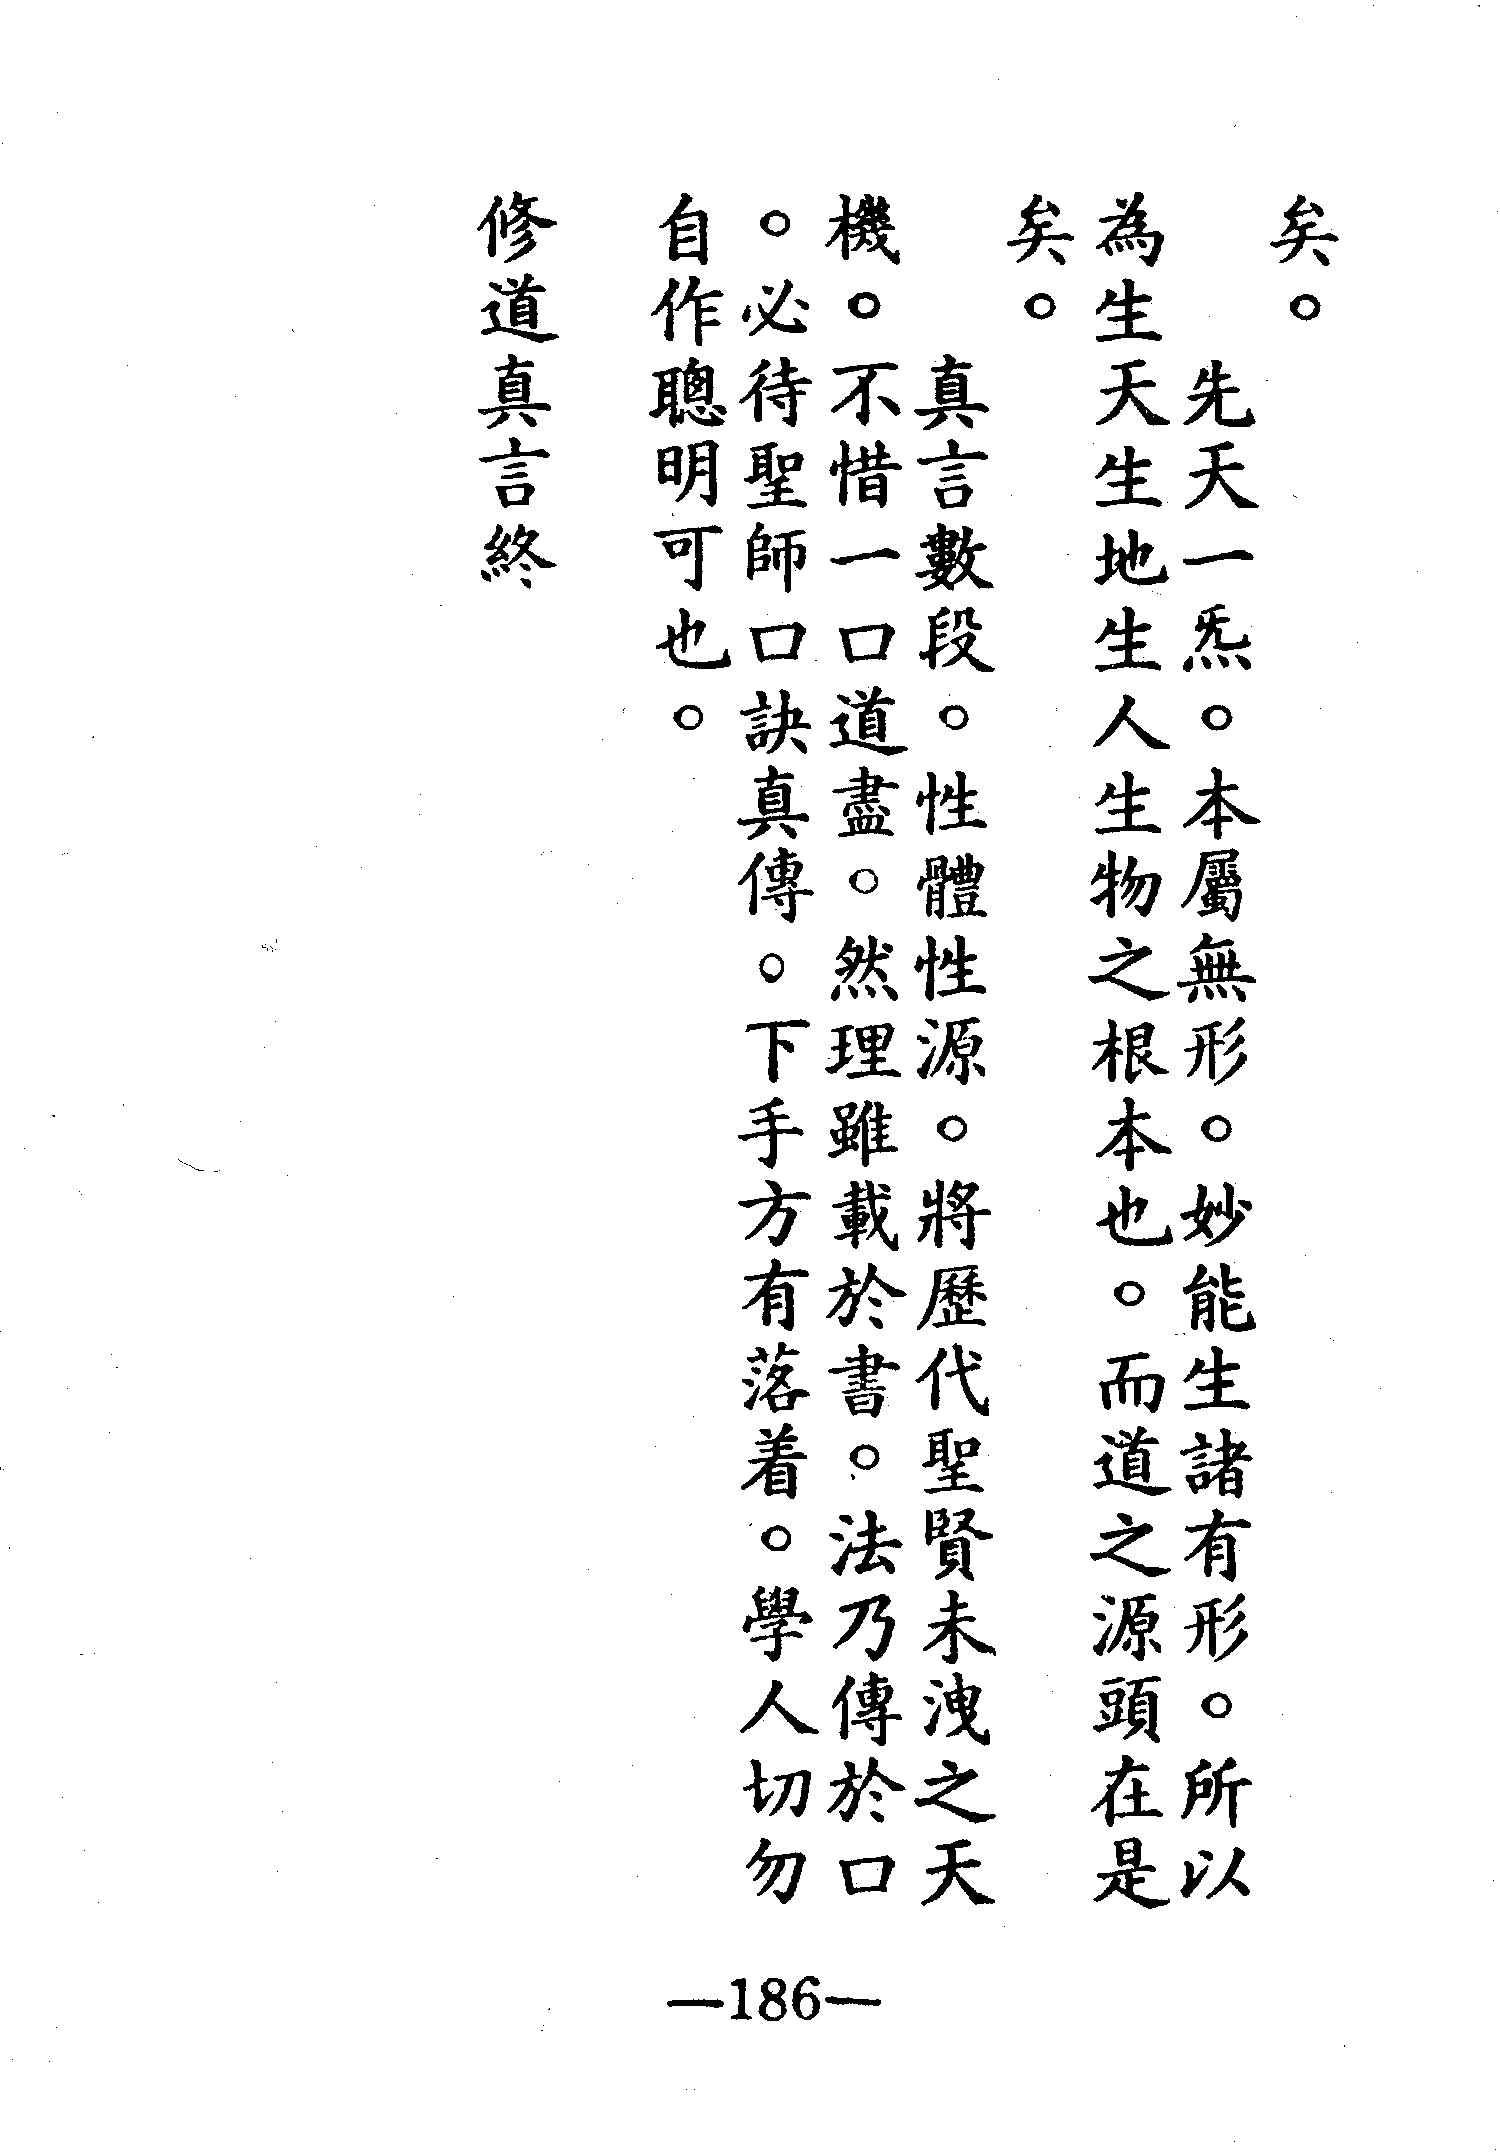 矣。
先天一炁。本屬無形。妙能生諸有形。所以
為生天生地生人生物之根本也。而道之源頭在是
矣。
真言數段。性體性源。將歷代聖賢未洩之天
機。不惜一口道盡。然理雖載於書。法乃傳於口
。必待聖師口訣真傳。下手方有落着。學人切勿
自作聰明可也。
修道真言終
—186—